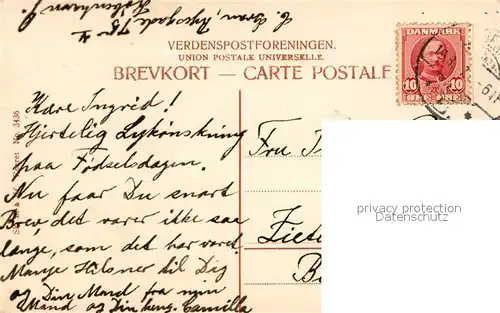 København
VERDENSPOSTFORENINGEN.
UNION POSTALE UNIVERSELLE.
BREVKORT — CARTE POSTALE
DANMARK
10 10
ØRE ØRE
No. 3436
Kære Ingrid!
Hjertelig Lykønskning
paa Fødselsdagen.
Nu faar Du snart
Brev det varer ikke saa
længe, som det har varet.
Mange Hilsner til Dig
og Din Mand fra min
Mand og Din heng. Camilla
Fru
privacy protection
Datenschutz